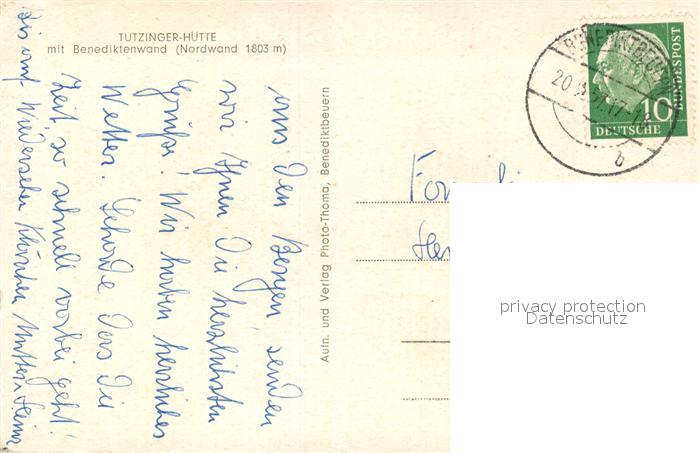 TUTZINGER-HÜTTE
mit Benediktenwand (Nordwand 1803 m)
aus den Bergen senden
wir Ihnen die herzlichsten
Grüße! Wir haben herrliches
Wetter. Schade das die
Zeit so schnell vorbei geht!
Bis auf Wiedersehen Klärchen Mutter
Aufn. und Verlag Photo-Thoma, Benediktbeuern
BENEDIKTBEUERN
20
17-18
b
10
DEUTSCHE
BUNDESPOST
privacy protection
Datenschutz